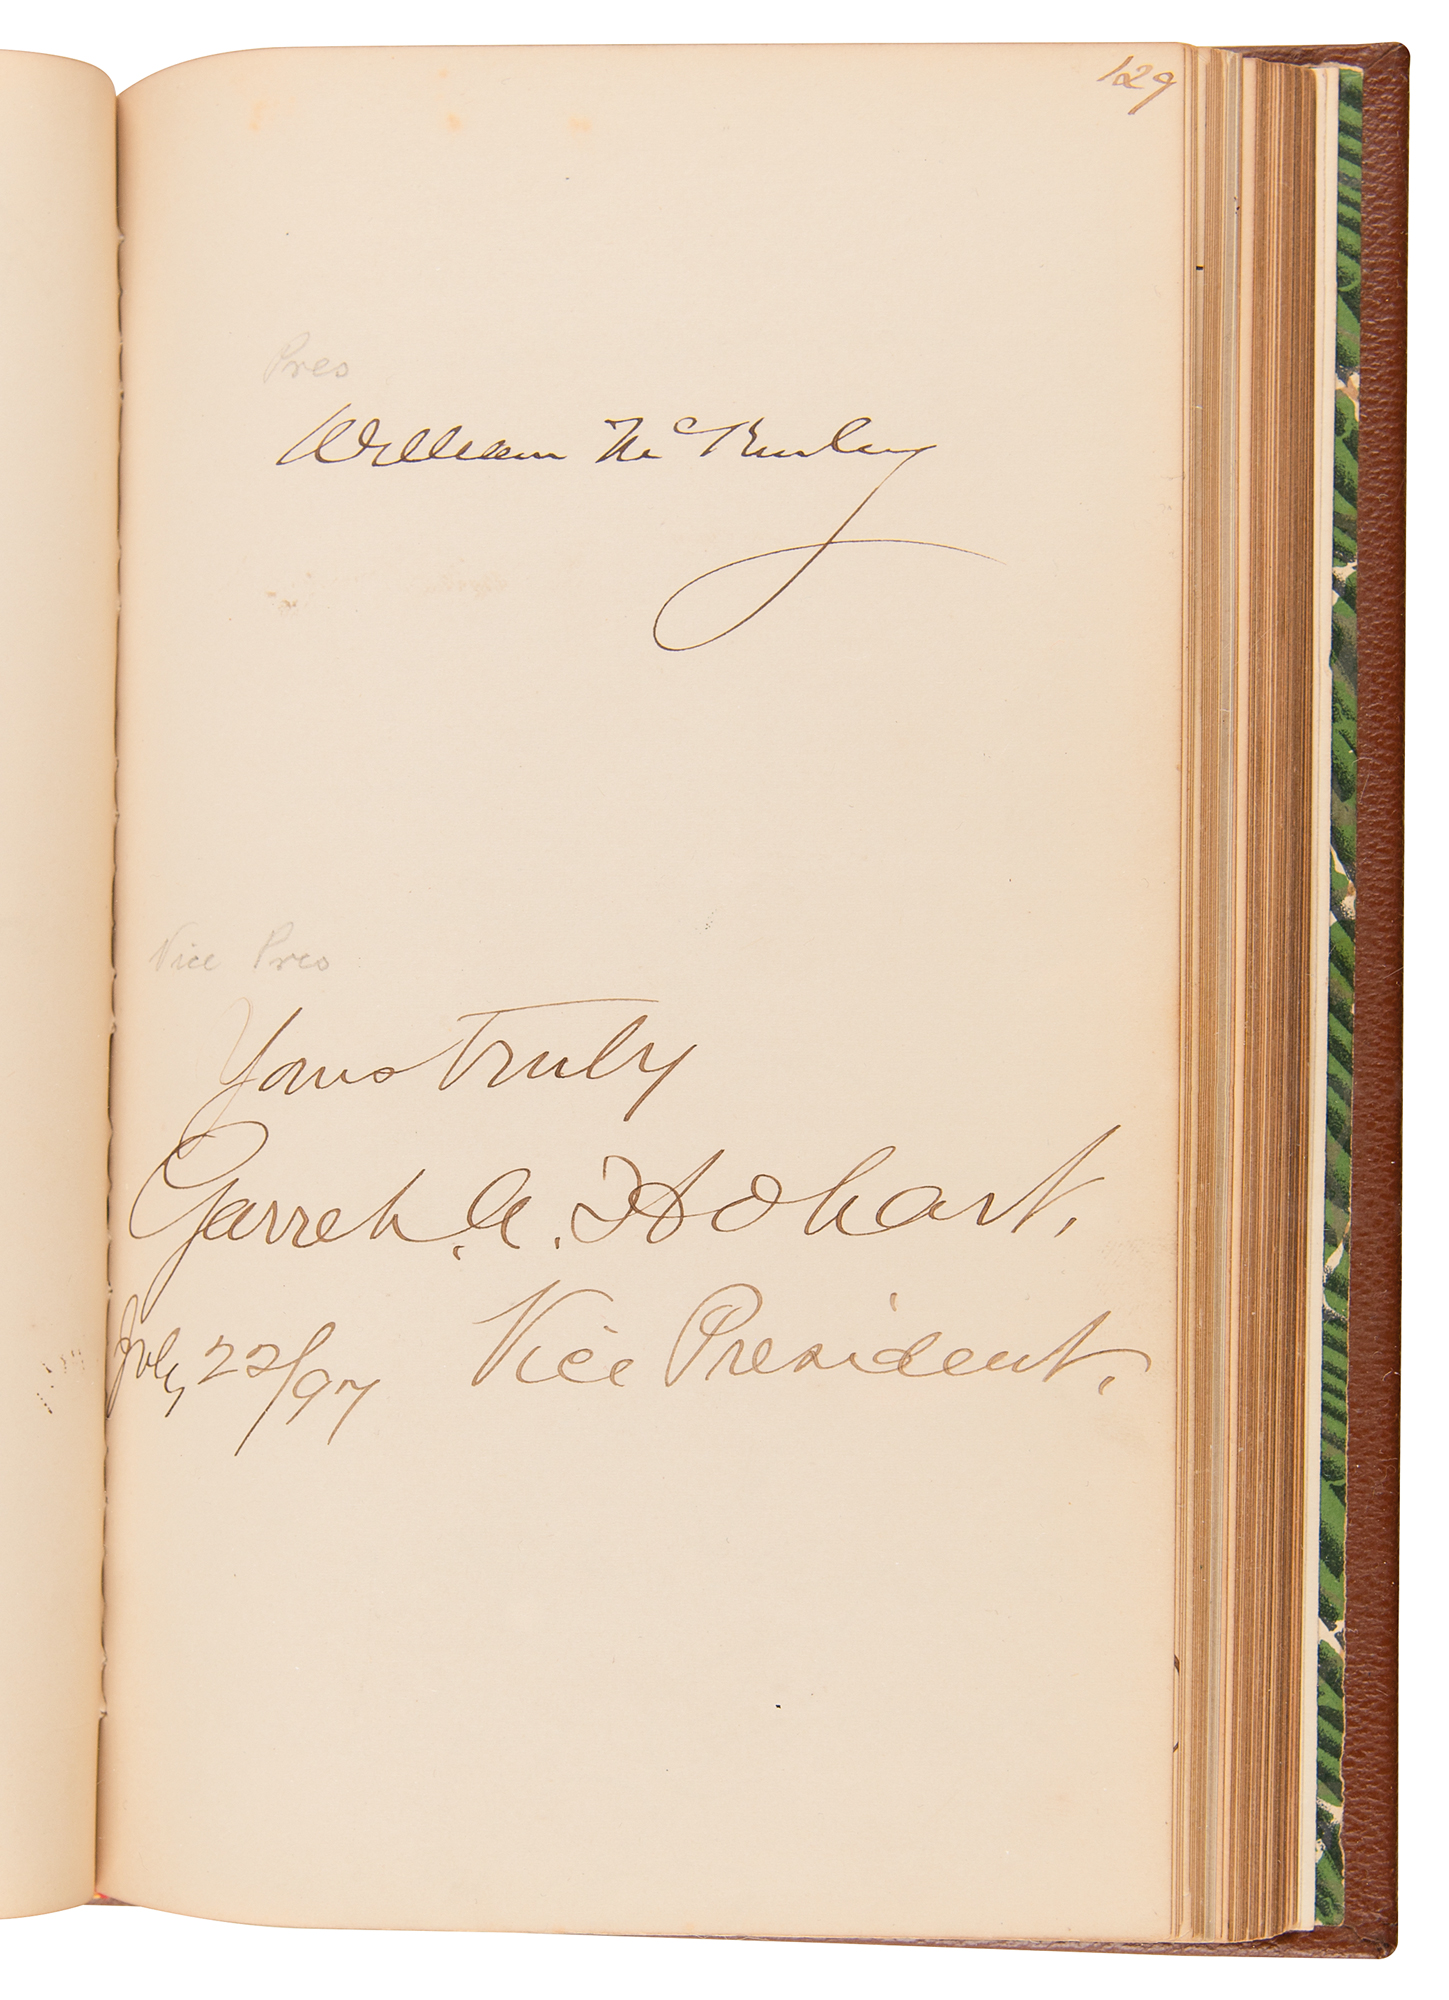 129
Pres
William McKinley
Vice Pres
Yours truly
Garret A. Hobart.
July 22/97 Vice President.